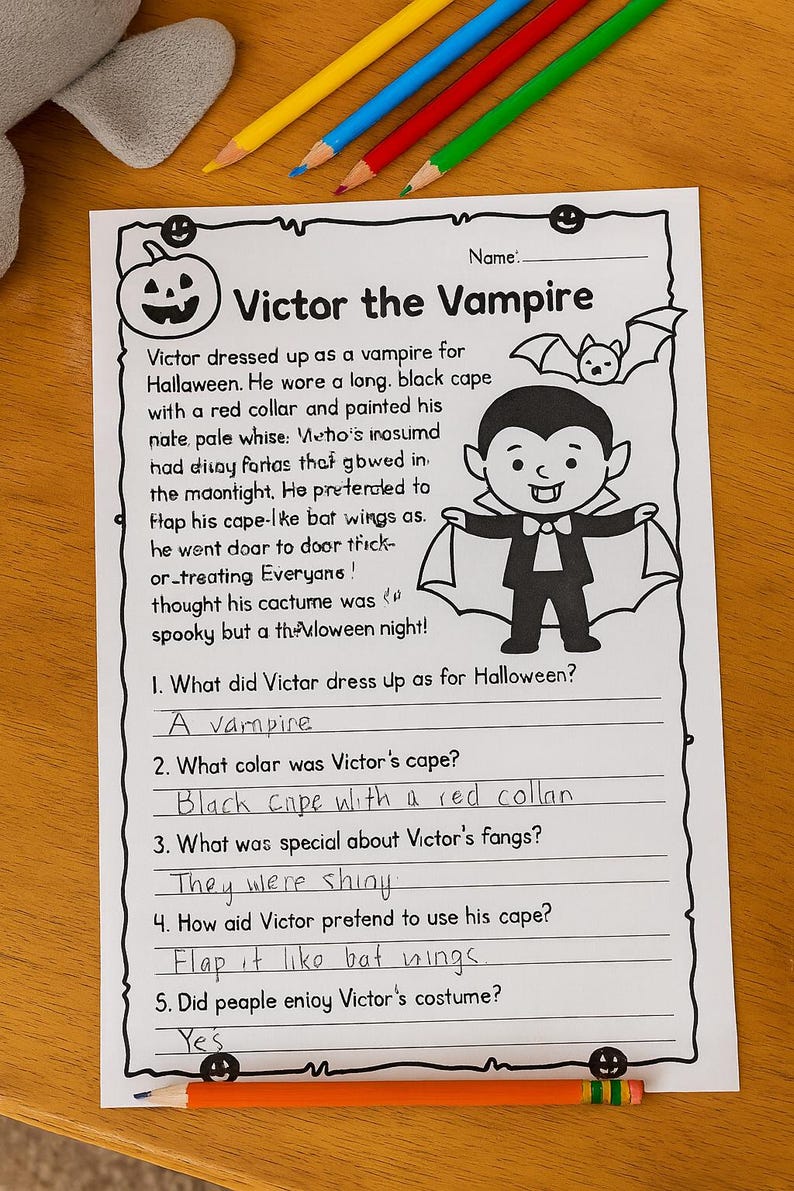 Name:
Victor the Vampire
Victor dressed up as a vampire for
Hallaween. He wore a long. black cape
with a red collar and painted his
pale
had that in
the maontight. He to
his cape-like bat wings as.
he went doar to door trick-
or-treating Everyans!
thought his cactume was
spooky but a night!
1. What did Victar dress up as for Halloween?
A vampire
2. What colar was Victor's cape?
Black cape with a red collan
3. What was special about Victor's fangs?
They were shiny
4. How aid Victor pretend to use his cape?
Flap it like bat wings.
5. Did peaple enioy Victor's costume?
Yes